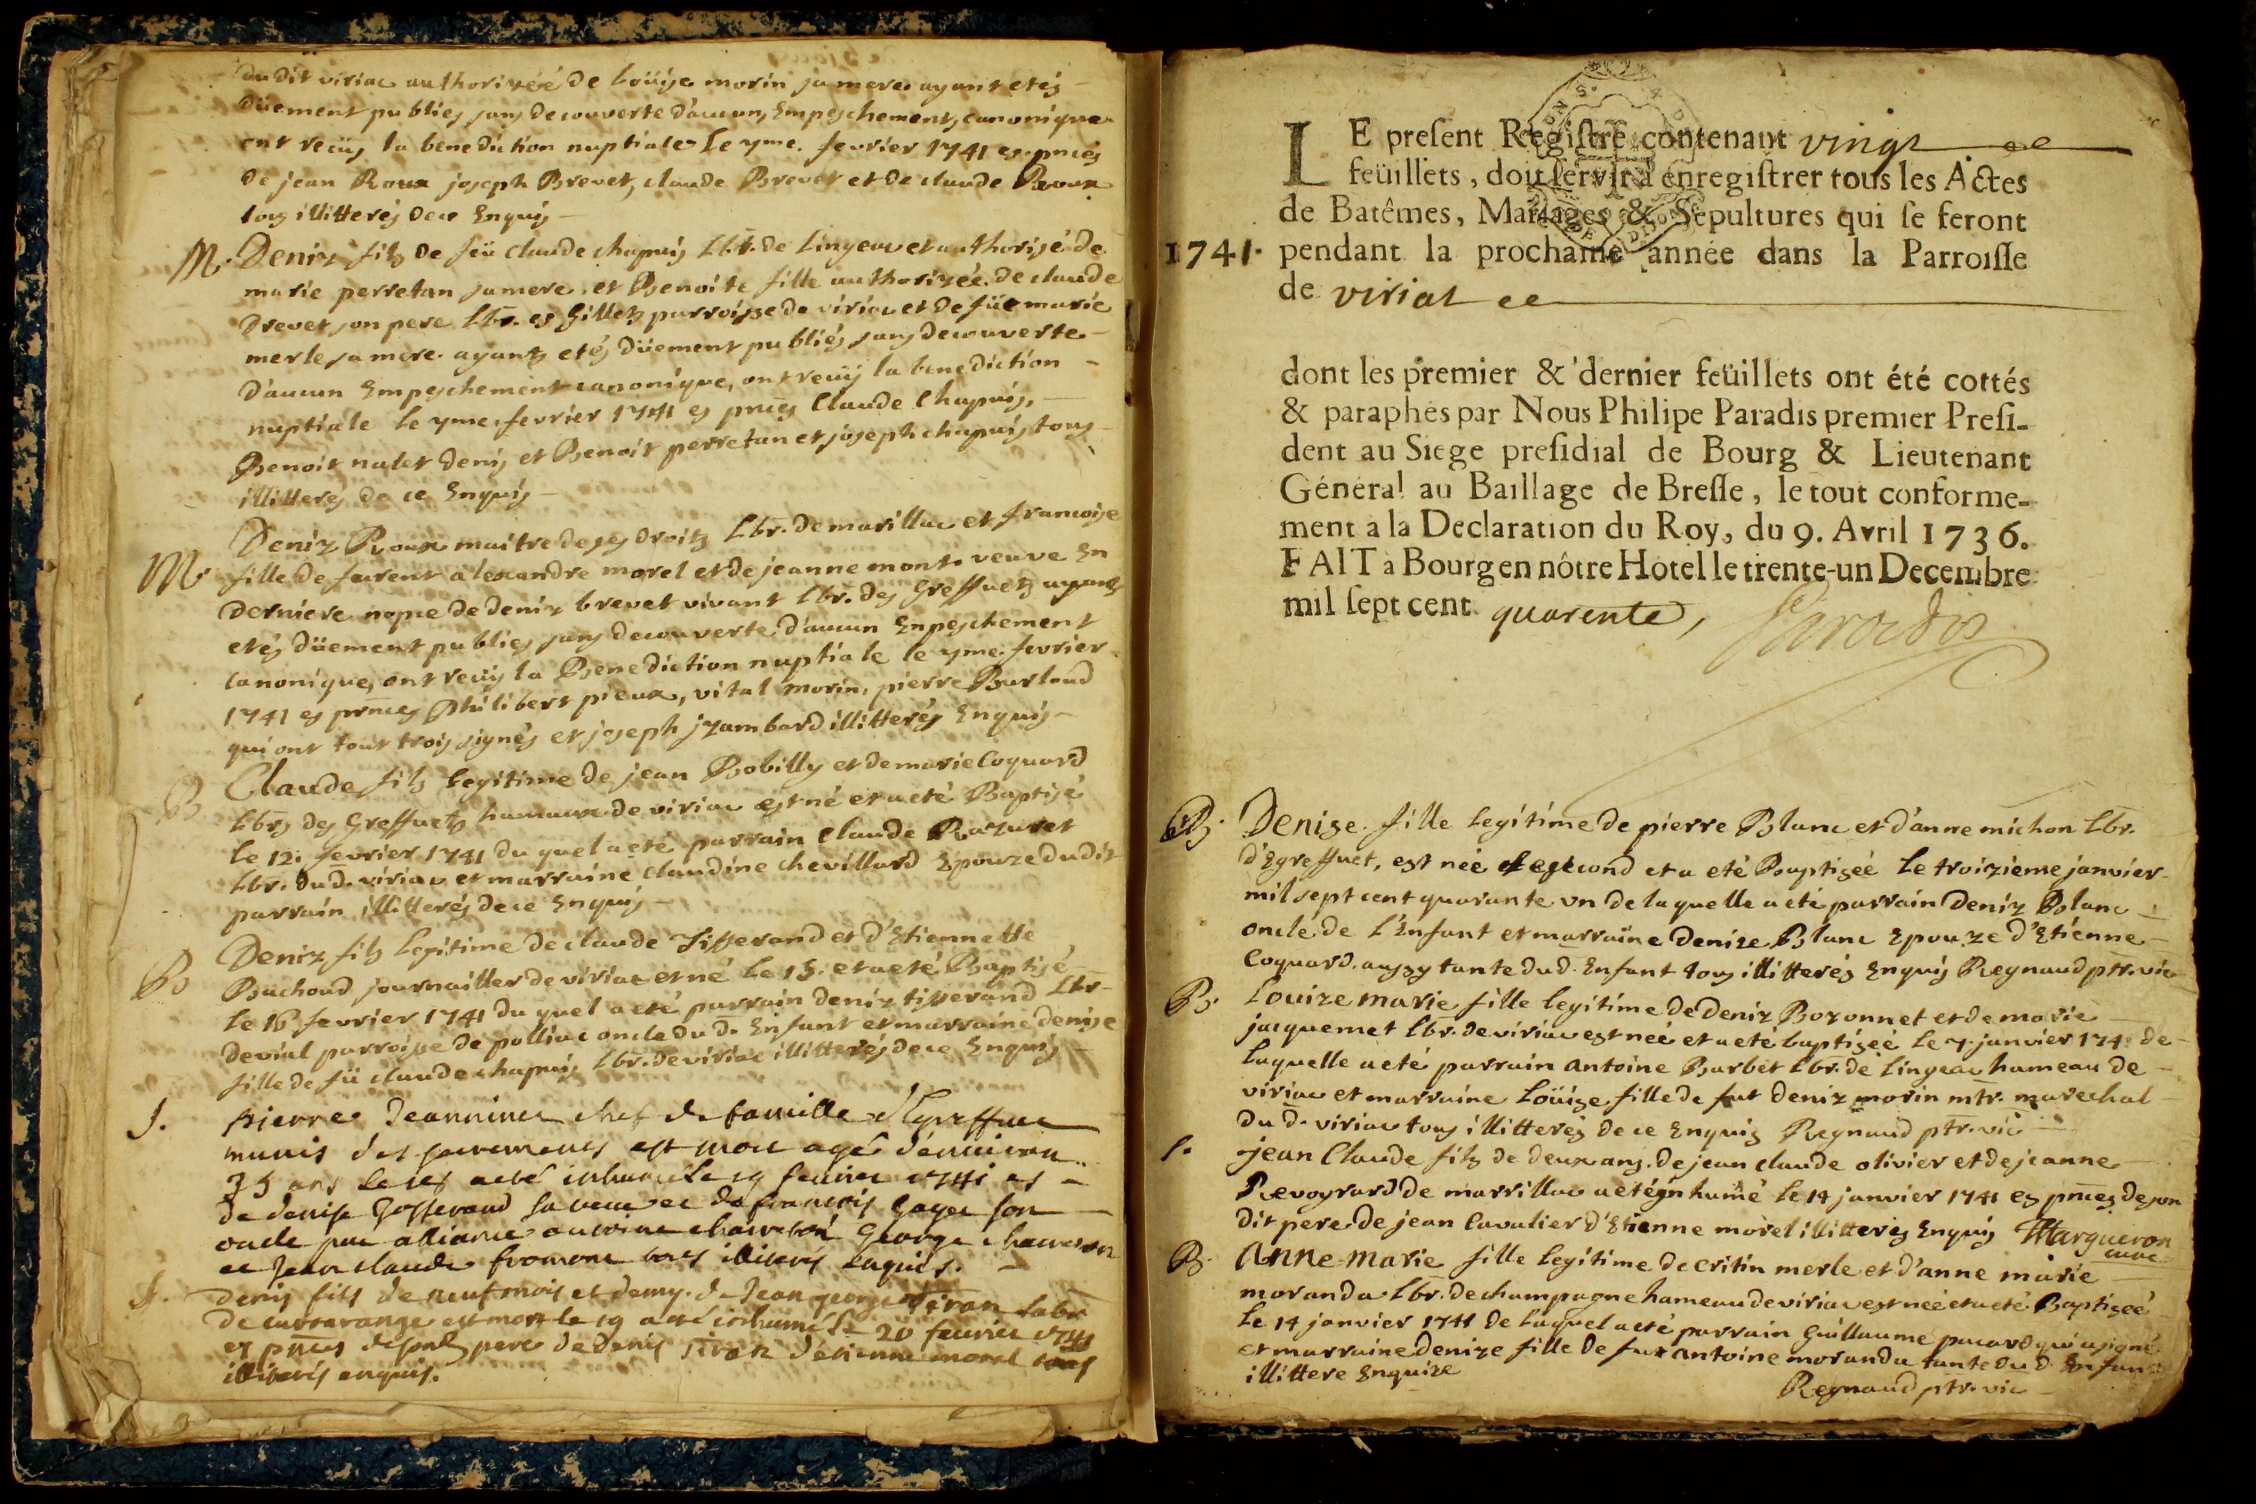 du dit viriac authorizéé de Loüise morin sa mere ayant etés
düement publies sans decouverte d'aucuns Empeschements canonique
ont reçüs la benediction nuptiale le 7me. fevrier 1741 es pnces
de jean Roux joseph Brevet, claude Brevet et de claude Roux
tous illitterés de ce Enquis
M. Deniz fils de feü claude chapuis Lbr. de Lingeac et authorisé de
marie perretan sa mere, et Benoite fille authorizée de claude
Drevet son pere Lbr. es Gillets parroisse de viriac et de füe marie
merle sa mere ayants etés düement publiés sans decouverte
d'aucun Empeschement canonique, ont reçüs la benediction
nuptiale le 7me fevrier 1741 es pnces Claude Chapuis,
Benoit nalet denis et Benoit perretan et joseph chapuis tous
illitteres de ce Enquis
M. Deniz Roux maitre de ses droits Lbr. de marillac et francoise
fille de furent alexandre morel et de jeanne mont veuve En
derniere nopce de deniz brevet vivant Lbr. des Greffuets ayants
etés düement publies sans decouverte d'aucun Enpeschement
canonique, ont reçüs la Benediction nuptiale le 7me fevrier
1741 es pnces Philibert pieux, vital morin, pierre Burtoud
qui ont tout trois signés et joseph jzambard illitterés Enquis
B Claude fils legitime de jean Bobilly et de marie Coquard
Lbrs des Greffuets hameaux de viriac est né et a eté Baptisé
le 12. fevrier 1741 du quel a eté parrain claude Razuret
Lbr. du d. viriac et marraine claudine chevillard Epouze du dit
parrain illitterés de ce Enquis
B Deniz fils legitime de claude Tisserand et d'Etiennette
Bachoud journailler de viriac et né le 15. et a eté Baptisé
le 16 fevrier 1741 du quel a eté parrain deniz tisserand Lbr
de vial parroisse de polliac oncle du d. Enfant et marraine denise
fille de fü claude chapuis Lbr. de viriac illitterés de ce Enquis
S. pierre Jeanninet chef de famille d'Egreffuet
munis des sacrements est mort agé d'environ
35 ans le 18 a eté inhumé le 19 fevrier 1741 es
de denise Tisserand sa veuve et de francois Gayet son
oncle par alliance antoine chaneson George chaneson
et jean claude fromont tous illiterés enquis.
S. denis fils de neuf mois et demy de Jean george Tiran labr
de carrarange est mort le 19 a eté inhumé le 20 fevrier 1741
es pnces desond pere de denis Tiran d'etienne morel tous
illiterés enquis.
LE present Registre contenant vingt
feüillets, doit servir à enregistrer tous les Actes
de Batêmes, Mariages & Sepultures qui se feront
1741. pendant la prochaine année dans la Parroisse
de viriat
dont les premier & dernier feüillets ont été cottés
& paraphés par Nous Philipe Paradis premier Presi-
dent au Siege presidial de Bourg & Lieutenant
Général au Baillage de Bresse, le tout conforme-
ment à la Declaration du Roy, du 9. Avril 1736.
FAIT à Bourg en nôtre Hotel le trente-un Decembre
mil sept cent quarente, Paradis
B. Denise fille legitime de pierre Blanc et d'anne michon Lbr.
d'Egreffuet, est née le second et a eté Baptiséé le troizieme janvier
mil sept cent quarante un de laquelle a eté parrain Deniz Blanc
oncle de L'Enfant et marraine Denize Blanc Epouze d'Etienne
Coquard aussy tante dud. Enfant tous illitterés Enquis Regnaud ptr. vic
B. Louize marie fille legitime de Deniz Bozonnet et de marie
jacquemet Lbr. de viriac est néé et a eté baptiséé le 7 janvier 174 de
laquelle a eté parrain antoine Barbet Lbr. de Lingeac hameau de
viriac et marraine Loüise fille de fut deniz morin mtr. marechal
du d. viriac tous illitteres de ce Enquis Regnaud ptr. vic
S. jean Claude fils de deux ans de jean claude olivier et de jeanne
Revoyrard de marrillac a eté inhumé le 14 janvier 1741 es pnces de son
dit pere de jean Cavalier d'Etienne morel illitterés Enquis Margueron
curé
B. Anne-Marie fille legitime de critin merle et d'anne marie
moranda Lbr. de champagne hameau de viriac est néé et a eté Baptiséé
le 14 janvier 1741 de laquel a eté parrain Guillaume pacard qui a signé
et marraine denize fille de fut antoine moranda tante du d. Enfant
illittere Enquize
Regnaud ptr. vic